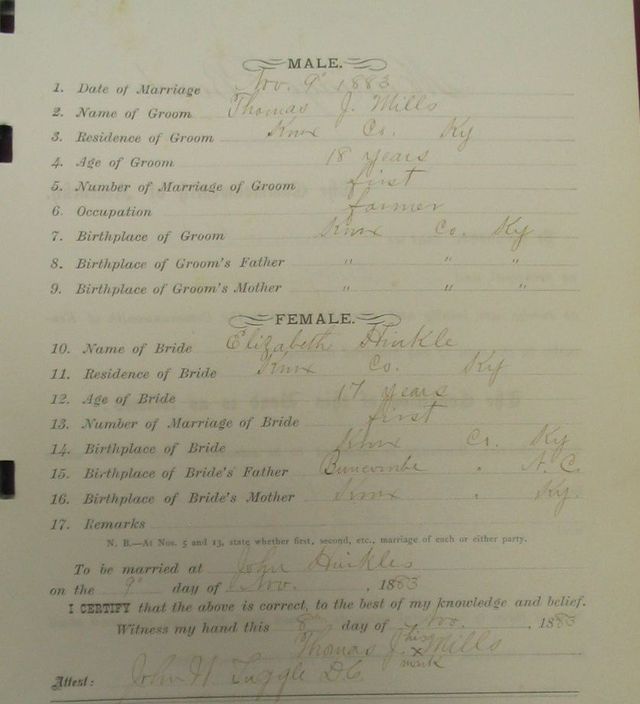 MALE.
1. Date of Marriage Nov. 9" 1883
2. Name of Groom Thomas J. Mills
3. Residence of Groom Knox Co. Ky
4. Age of Groom 18 years
5. Number of Marriage of Groom first
6. Occupation farmer
7. Birthplace of Groom Knox Co. Ky
8. Birthplace of Groom's Father " " "
9. Birthplace of Groom's Mother " " "
FEMALE.
10. Name of Bride Elizabeth Hinkle
11. Residence of Bride Knox Co. Ky
12. Age of Bride 17 years
13. Number of Marriage of Bride first
14. Birthplace of Bride Knox Co. Ky
15. Birthplace of Bride's Father Buncombe " N. C.
16. Birthplace of Bride's Mother Knox " Ky.
17. Remarks
N. B.—At Nos. 5 and 13, state whether first, second, etc., marriage of each or either party.
To be married at John Hinkles
on the 9" day of Nov. , 1883
I CERTIFY that the above is correct, to the best of my knowledge and belief.
Witness my hand this 8" day of Nov. 1883
Thomas J. his x mark Mills
Attest: John H Tuggle D.C.